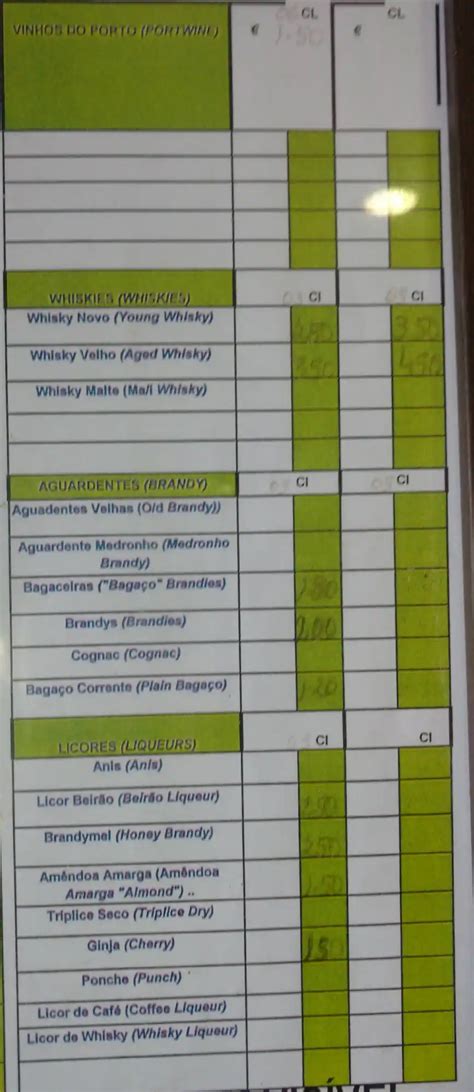 VINHOS DO PORTO (PORTWINE) € CL € CL
1.50
WHISKIES (WHISKIES) 03 Cl 05 Cl
Whisky Novo (Young Whisky) 3.50
Whisky Velho (Aged Whisky) 3.50 4.90
Whisky Malte (Malt Whisky)
AGUARDENTES (BRANDY) 03 Cl 05 Cl
Aguadentes Velhas (Old Brandy))
Aguardente Medronho (Medronho
Brandy)
Bagaceiras ("Bagaço" Brandies) 1.80
Brandys (Brandies) 2.00
Cognac (Cognac)
Bagaço Corrente (Plain Bagaço) 1.20
LICORES (LIQUEURS) Cl Cl
Anis (Anis)
Licor Beirão (Beirão Liqueur)
Brandymel (Honey Brandy)
Amêndoa Amarga (Amêndoa
Amarga "Almond") .. 1.50
Triplice Seco (Triplice Dry)
Ginja (Cherry)
Ponche (Punch)
Licor de Café (Coffee Liqueur)
Licor de Whisky (Whisky Liqueur)